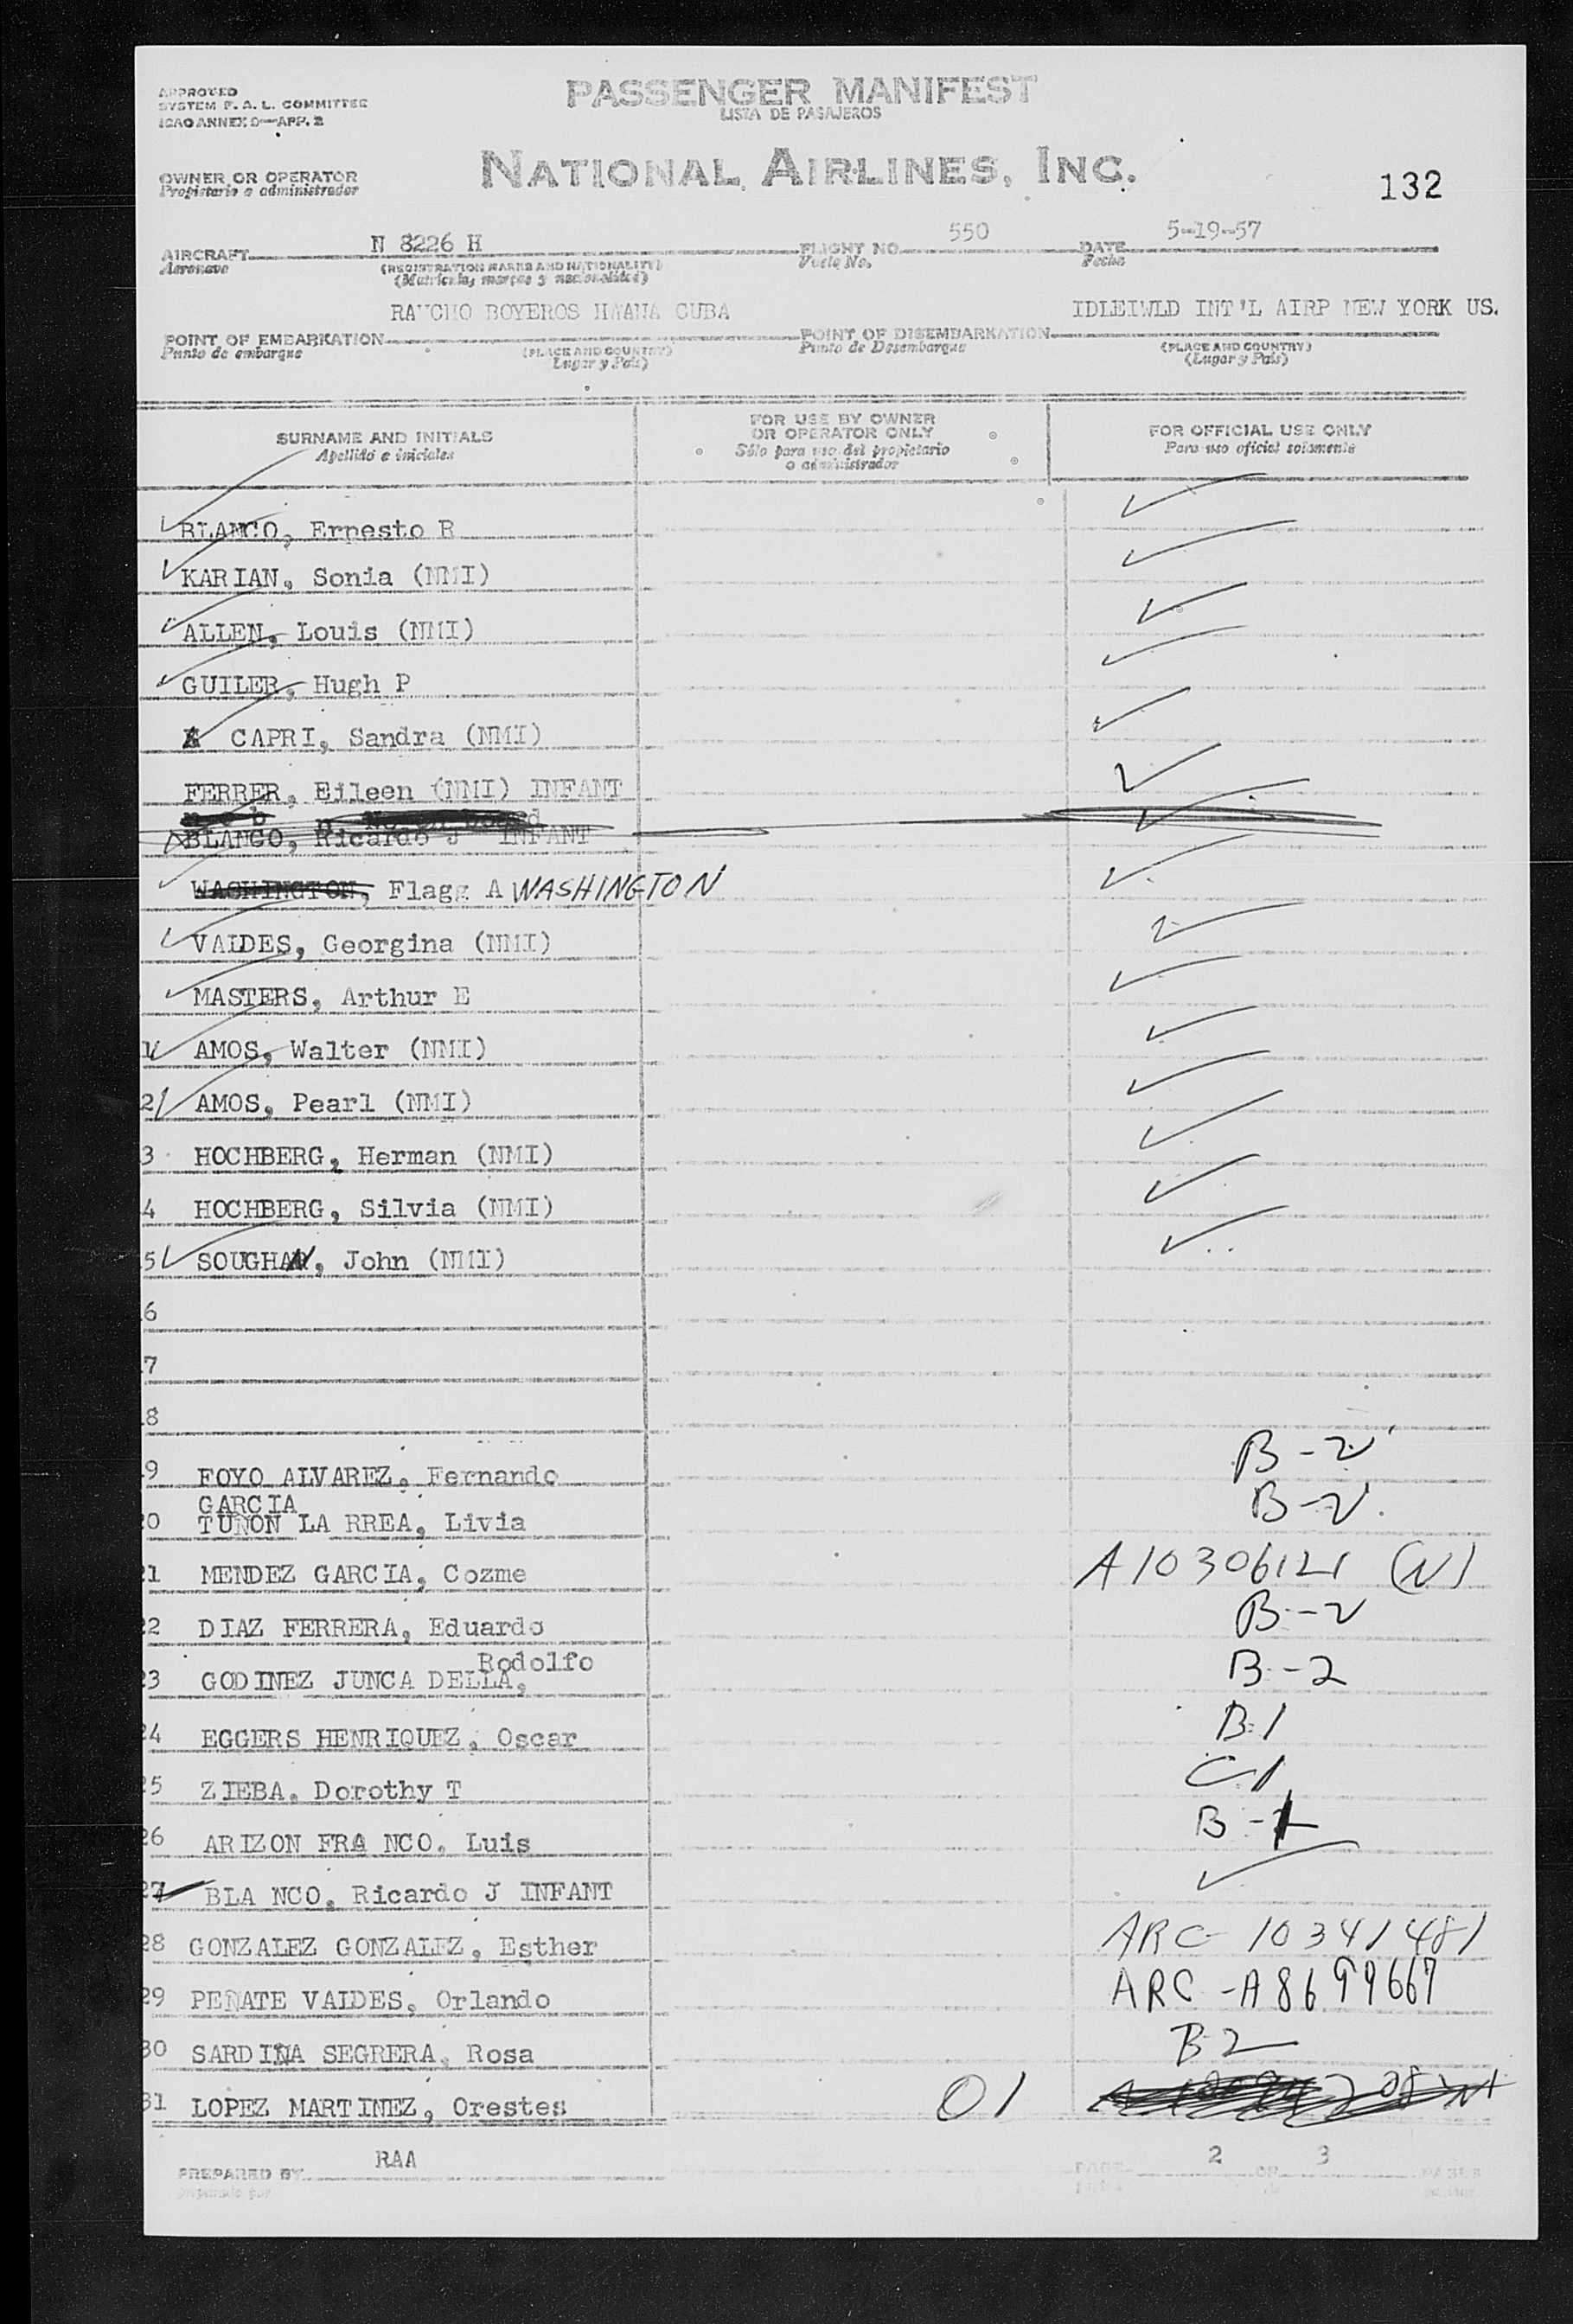 APPROVED
SYSTEM F. A. L. COMMITTEE
ICAO ANNEX 9—APP. 2
PASSENGER MANIFEST
LISTA DE PASAJEROS
OWNER OR OPERATOR
Propietario o administrador
NATIONAL AIRLINES, INC.
132
AIRCRAFT N 8226 H FLIGHT NO. 550 DATE 5-19-57
Aeronave (REGISTRATION MARKS AND NATIONALITY) Vuelo No. Fecha
(Matricula, marcas y nacionalidad)
RANCHO BOYEROS HAANA CUBA IDLEIWLD INT'L AIRP NEW YORK US.
POINT OF EMBARKATION POINT OF DISEMBARKATION
Punto de embarque (PLACE AND COUNTRY) Punto de Desembarque (PLACE AND COUNTRY)
(Lugar y País) (Lugar y País)
SURNAME AND INITIALS FOR USE BY OWNER OR OPERATOR ONLY FOR OFFICIAL USE ONLY
Apellido e iniciales Sólo para uso del propietario o administrador Para uso oficial solamente
BLANCO, Ernesto R
KARIAN, Sonia (NMI)
ALLEN, Louis (NMI)
GUILER, Hugh P
CAPRI, Sandra (NMI)
FERRER, Eileen (NMI) INFANT
BLANCO, Ricardo J INFANT
WASHINGTON, Flagg A WASHINGTON
VALDES, Georgina (NMI)
MASTERS, Arthur E
1 AMOS, Walter (NMI)
2 AMOS, Pearl (NMI)
3 HOCHBERG, Herman (NMI)
4 HOCHBERG, Silvia (NMI)
5 SOUGHAN, John (NMI)
6
7
8
9 FOYO ALVAREZ, Fernando B-2
GARCIA
0 TUNON LA RREA, Livia B-2
21 MENDEZ GARCIA, Cozme A10306121 (N)
22 DIAZ FERRERA, Eduardo B-2
Rodolfo
23 GODINEZ JUNCA DELLA, B-2
24 EGGERS HENRIQUEZ, Oscar B-1
25 ZIEBA, Dorothy T C1
26 ARIZON FRA NCO, Luis B-1
27 BLA NCO, Ricardo J INFANT
28 GONZALEZ GONZALEZ, Esther ARC 10341481
29 PENATE VALDES, Orlando ARC-A8699667
30 SARDINA SEGRERA, Rosa B-2
31 LOPEZ MARTINEZ, Orestes 01
PREPARED BY RAA PAGE 2 OF 3 PAGES